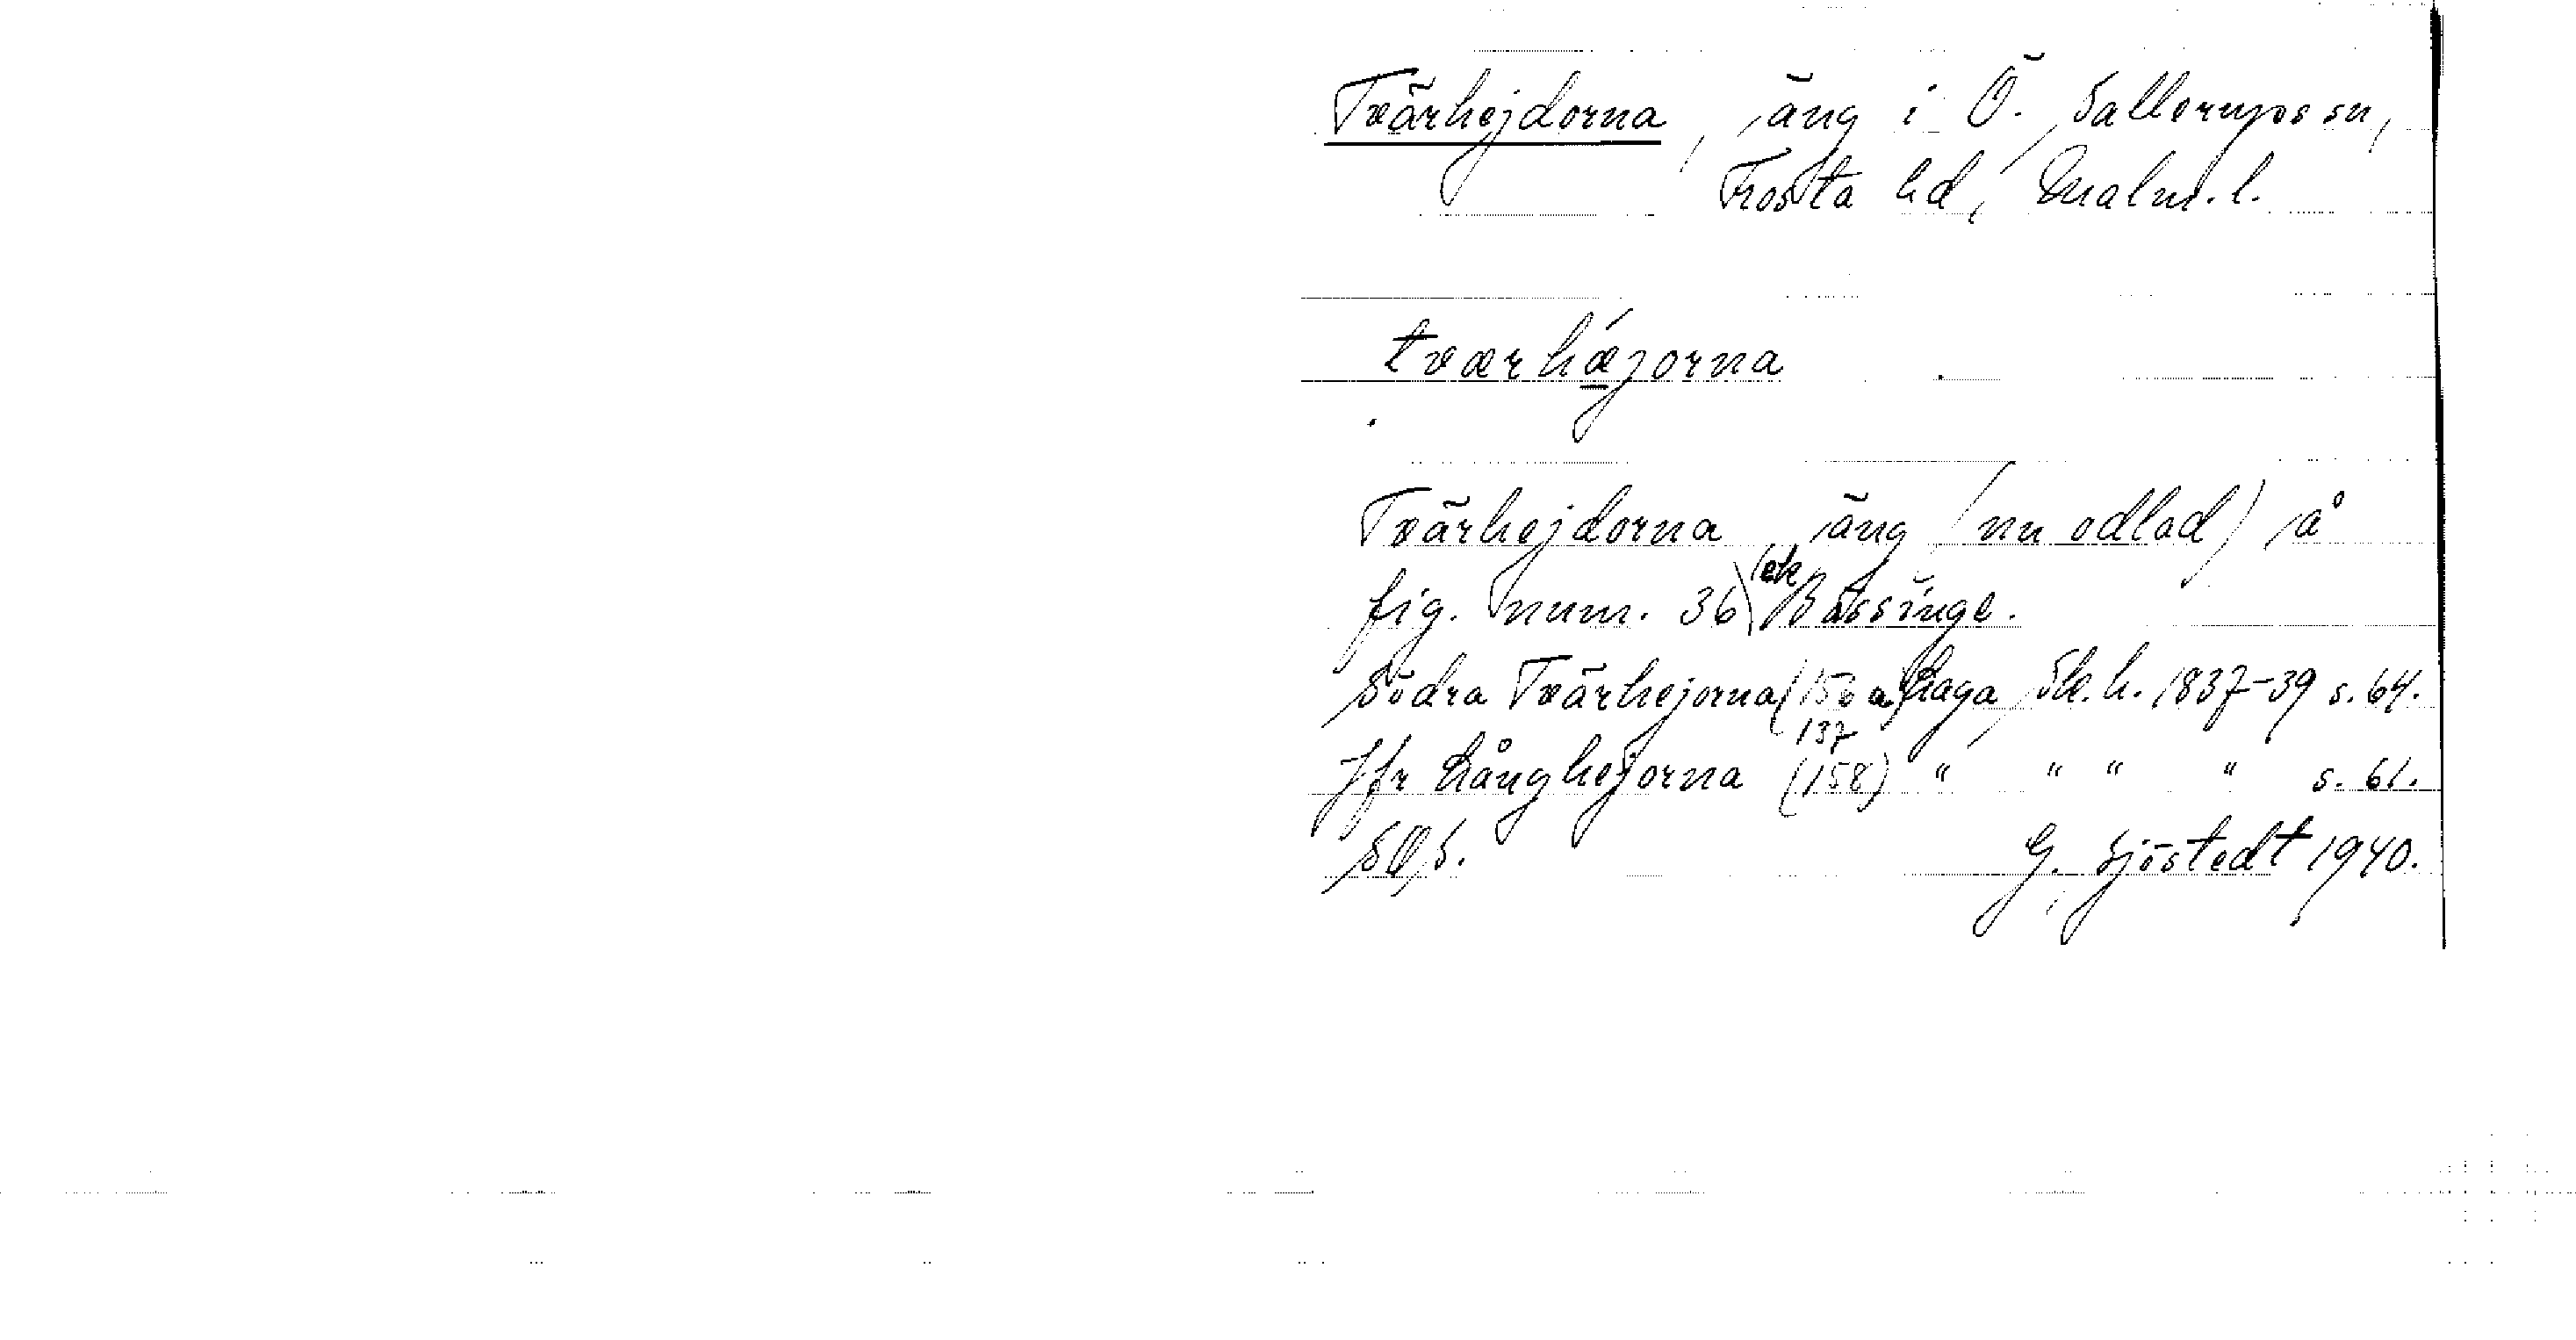 Tvärhejdorna, äng i Ö. Sallerups sn,
Frosta hd, Malm. l.
tværhǽjorna
Tvärhejdorna, äng (nu odlad) å
fig. num. 36 ek Bässinge.
Södra Tvärhejorna (156 a) Laga Sk. h. 1837-39 s. 64.
137
Jfr Långhejorna (158) " " " " s. 61.
SOS. G. Sjöstedt 1940.